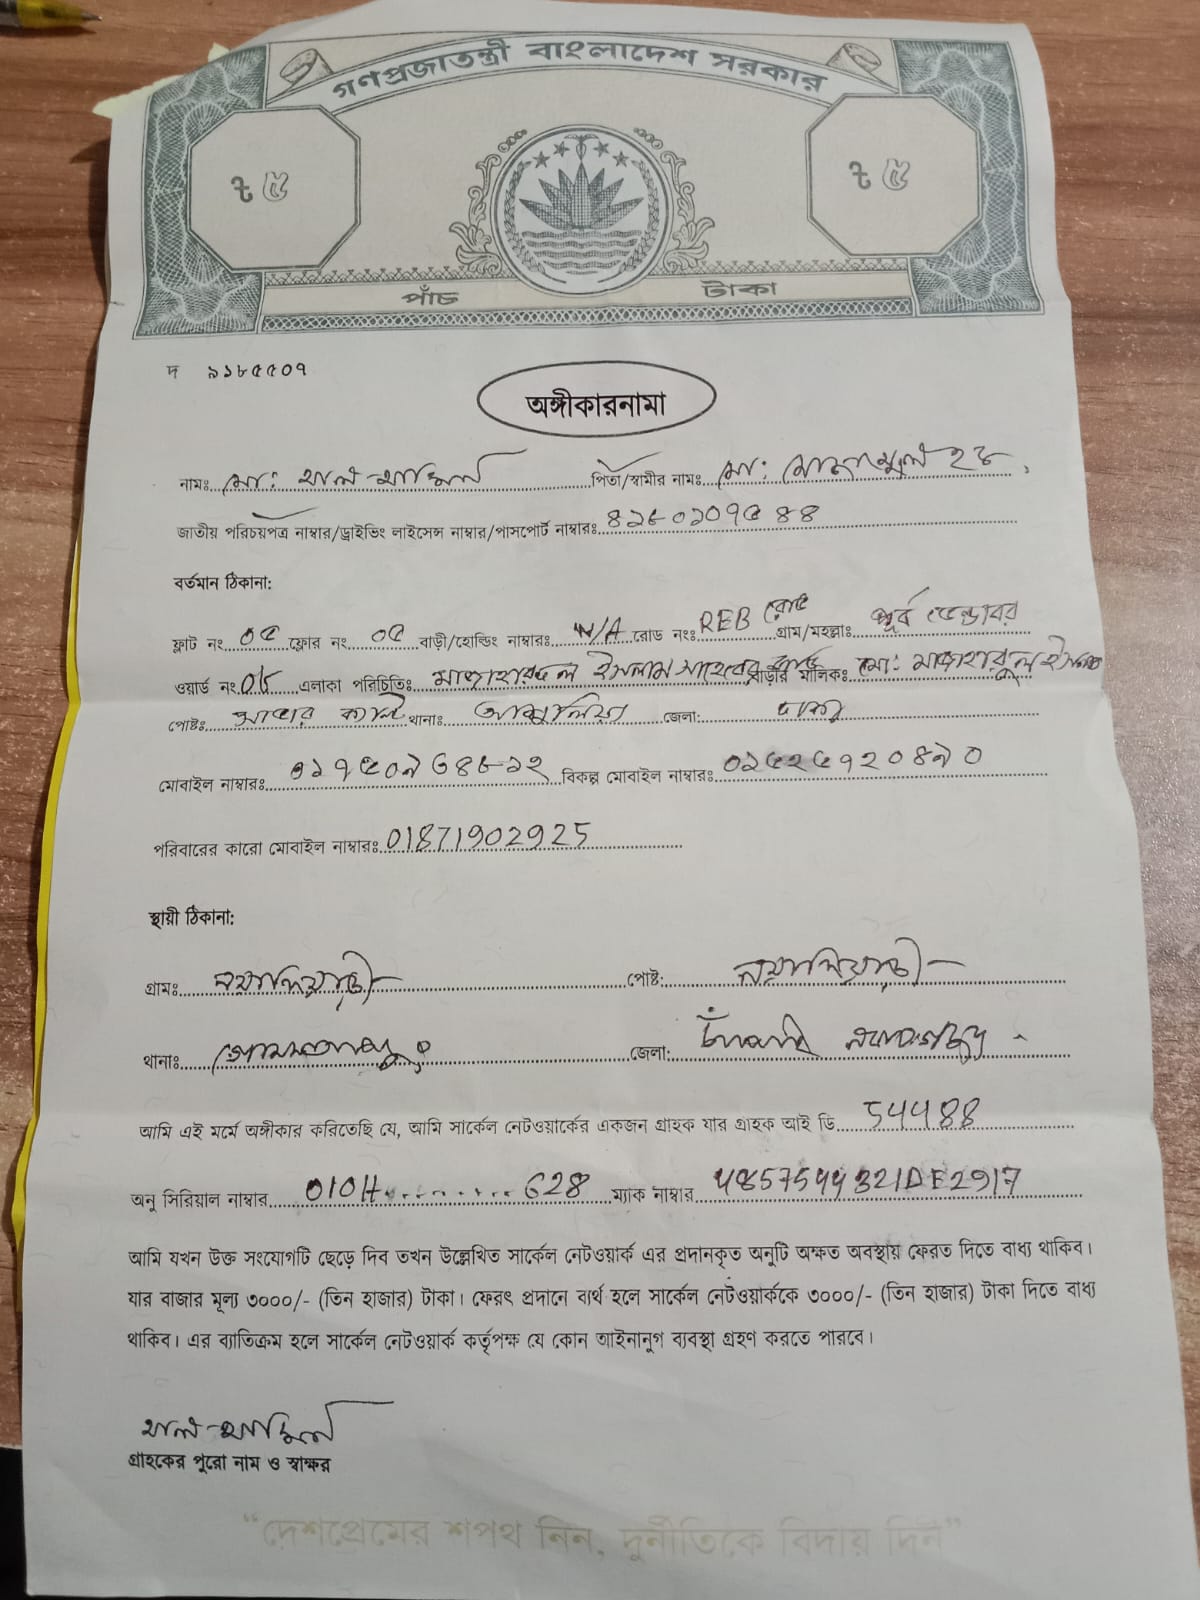 গণপ্রজাতন্ত্রী বাংলাদেশ সরকার
৳ ৫ ৳ ৫
পাঁচ টাকা
দ ৯১৮৫৫০৭
অঙ্গীকারনামা
নামঃ মো: আল- পিতা/স্বামীর নামঃ মো:
জাতীয় পরিচয়পত্র নাম্বার/ড্রাইভিং লাইসেন্স নাম্বার/পাসপোর্ট নাম্বারঃ
বর্তমান ঠিকানা:
ফ্লাট নং ০৫ ফ্লোর নং ০৫ বাড়ী/হোল্ডিং নাম্বারঃ N/A রোড নং: REB রোড গ্রাম/মহল্লাঃ পূর্ব
ওয়ার্ড নং এলাকা পরিচিতিঃ মাজাহারুল ইসলাম সাহেবের বাড়ি বাড়ীর মালিকঃ মো: মাজাহারুল ইসলাম
পোষ্টঃ থানাঃ আশুলিয়া জেলা: ঢাকা
মোবাইল নাম্বারঃ বিকল্প মোবাইল নাম্বারঃ
পরিবারের কারো মোবাইল নাম্বারঃ 01871902925
স্থায়ী ঠিকানা:
গ্রামঃ পোষ্ট:
থানাঃ জেলা:
আমি এই মর্মে অঙ্গীকার করিতেছি যে, আমি সার্কেল নেটওয়ার্কের একজন গ্রাহক যার গ্রাহক আই ডি 54488
অনু সিরিয়াল নাম্বার 010H.......... 628 ম্যাক নাম্বার 48575444321DE2917
আমি যখন উক্ত সংযোগটি ছেড়ে দিব তখন উল্লেখিত সার্কেল নেটওয়ার্ক এর প্রদানকৃত অনুটি অক্ষত অবস্থায় ফেরত দিতে বাধ্য থাকিব।
যার বাজার মূল্য ৩০০০/- (তিন হাজার) টাকা। ফেরৎ প্রদানে ব্যর্থ হলে সার্কেল নেটওয়ার্ককে ৩০০০/- (তিন হাজার) টাকা দিতে বাধ্য
থাকিব। এর ব্যাতিক্রম হলে সার্কেল নেটওয়ার্ক কর্তৃপক্ষ যে কোন আইনানুগ ব্যবস্থা গ্রহণ করতে পারবে।
আল-
গ্রাহকের পুরো নাম ও স্বাক্ষর
“দেশপ্রেমের শপথ নিন, দুর্নীতিকে বিদায় দিন”